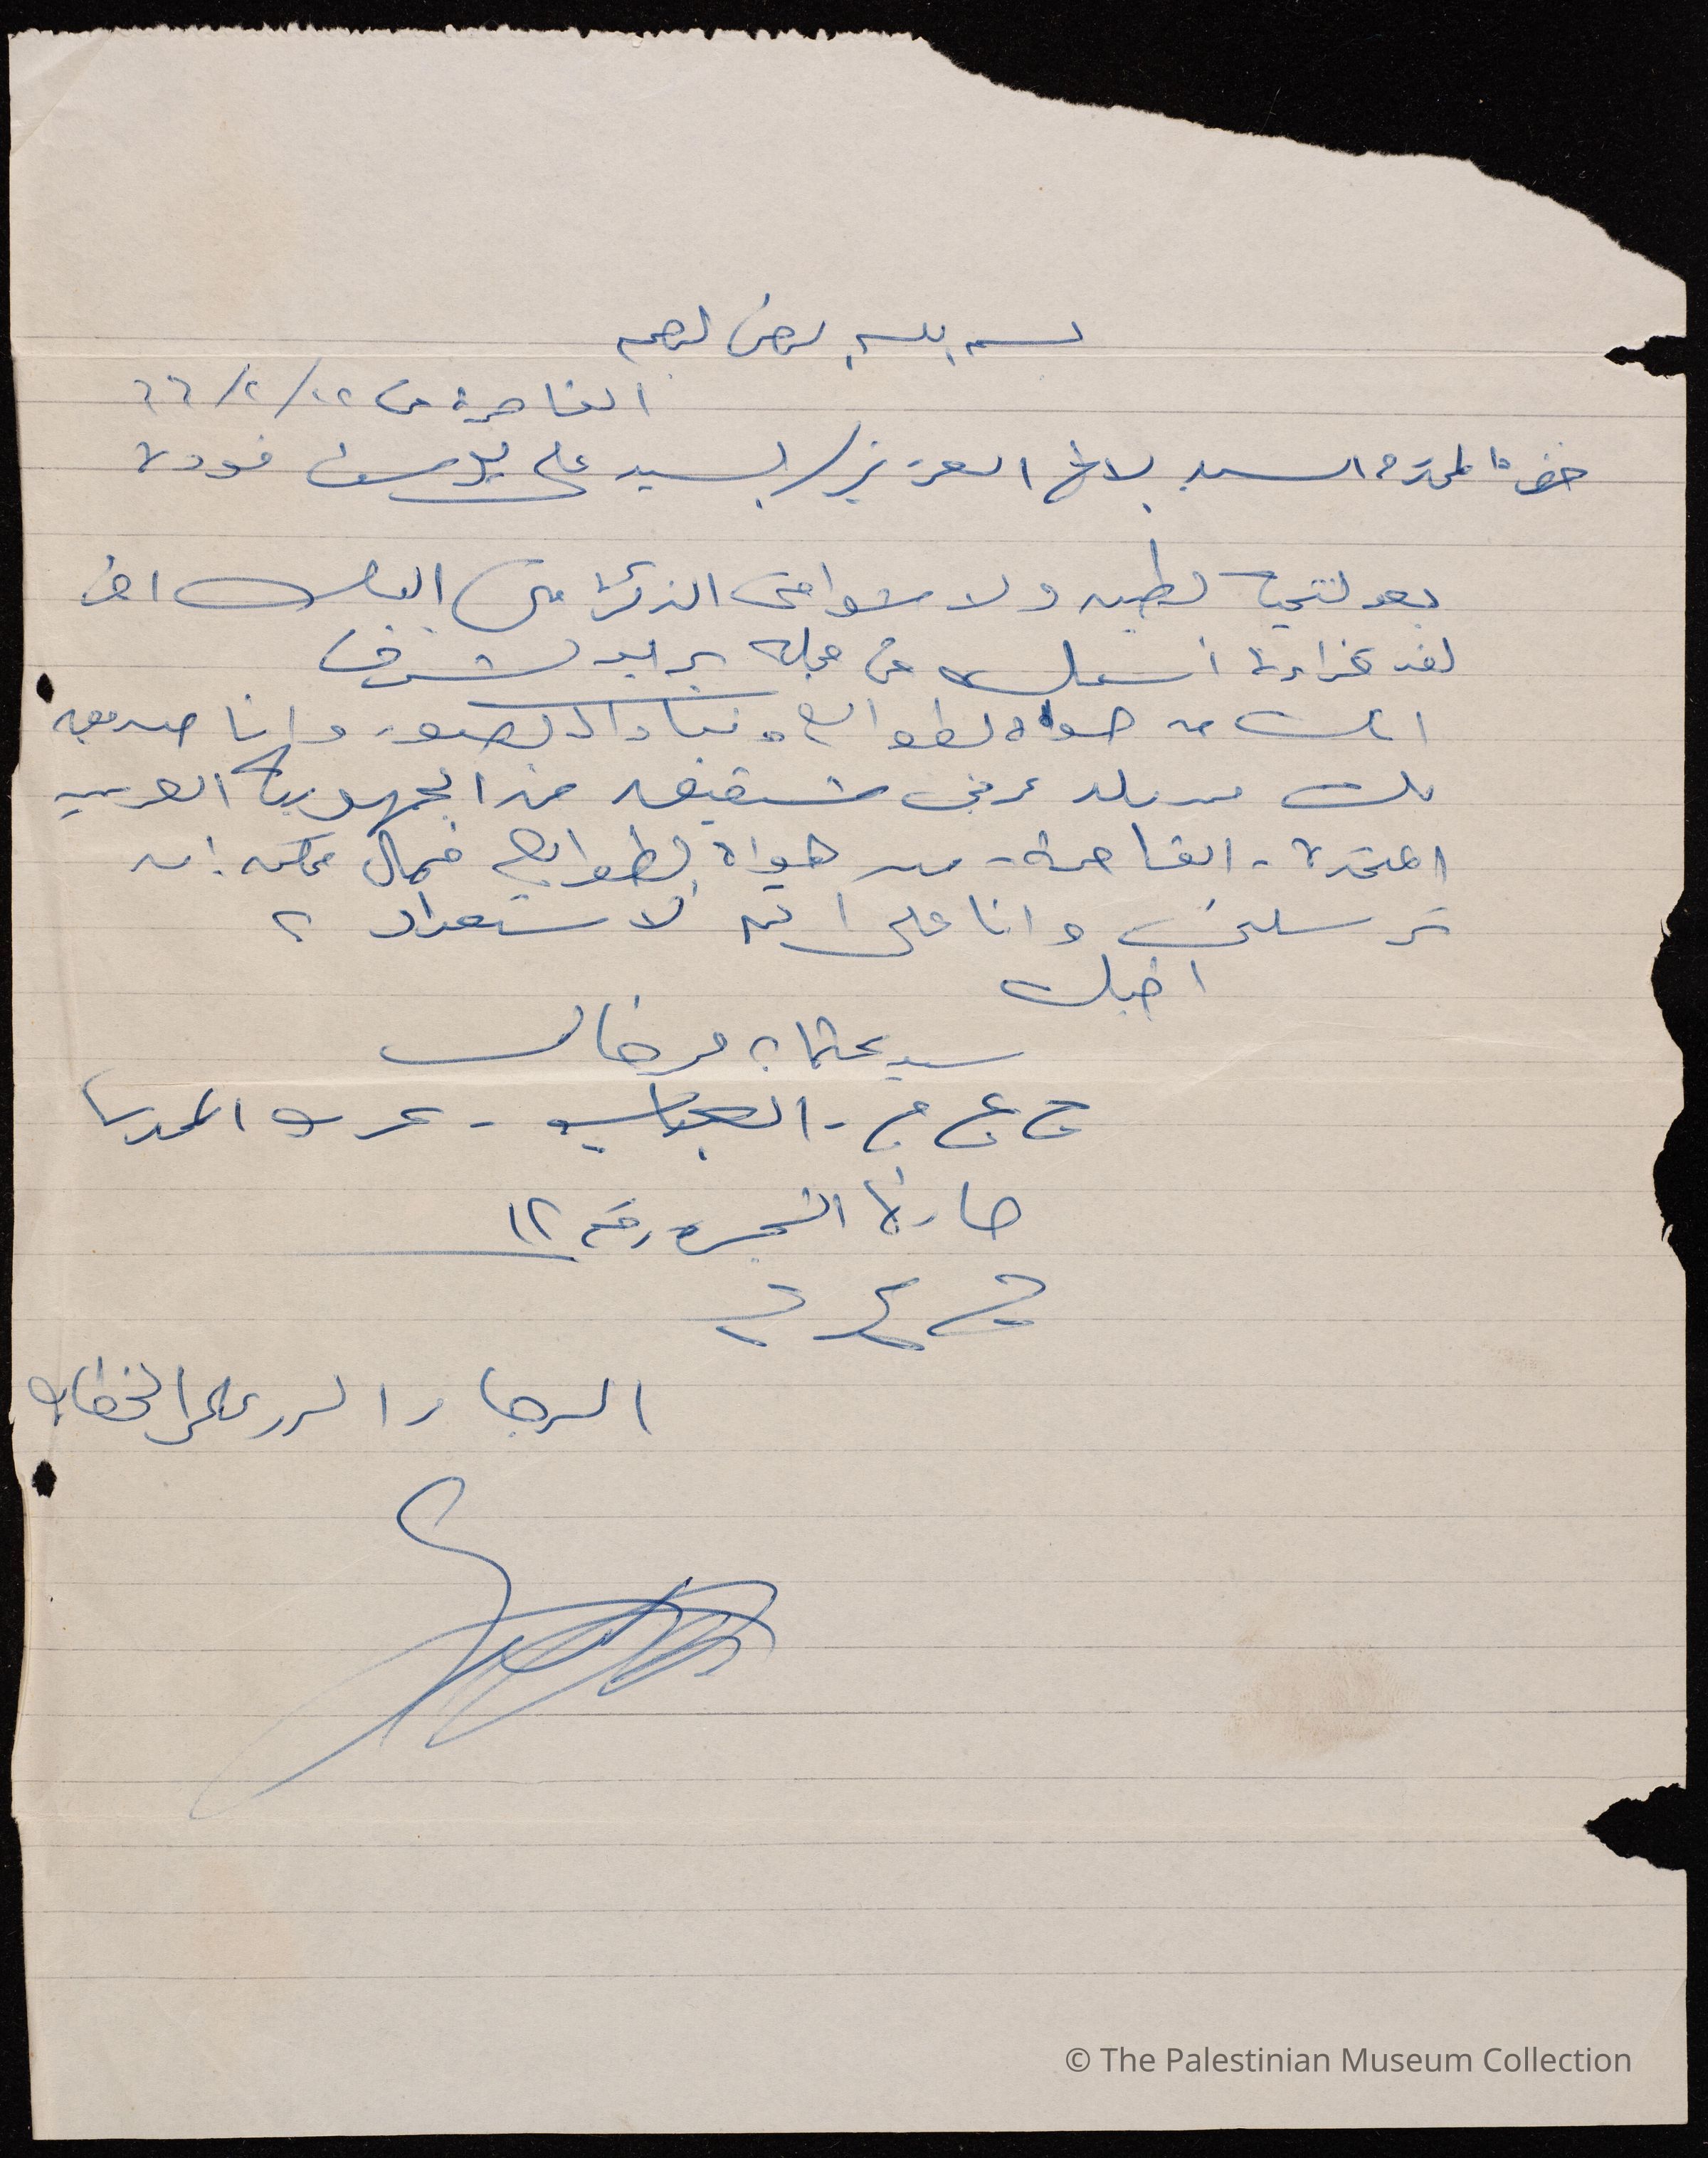 بسم الله الرحمن الرحيم
القاهرة في ٢٢/٢/٦٦
حضرة المحترم السيد الاخ العزيز/ السيد على يوسف فودة
بعد التحية الطيبه والاشواق الذكرا من اليك اخى
لقد قراءة أسمك فى مجلة يرايد الشرق
انك من هواه الطوابع وتبادل الصور وانا صديق
لك من بلد عربى شقيق من الجمهورية العربيه
المتحدة - القاهرة - من هواة الطوابع فهل ممكن ان
ترسلنى وانا على اتم الاستعداد ؟
اخيك
سيد عثمان فرغال
ج ع م - العباسيه - عرب المحمدى
حارة الشجره رقم ١٢
ج ع م
الرجاء الرد على الخطاب
© The Palestinian Museum Collection